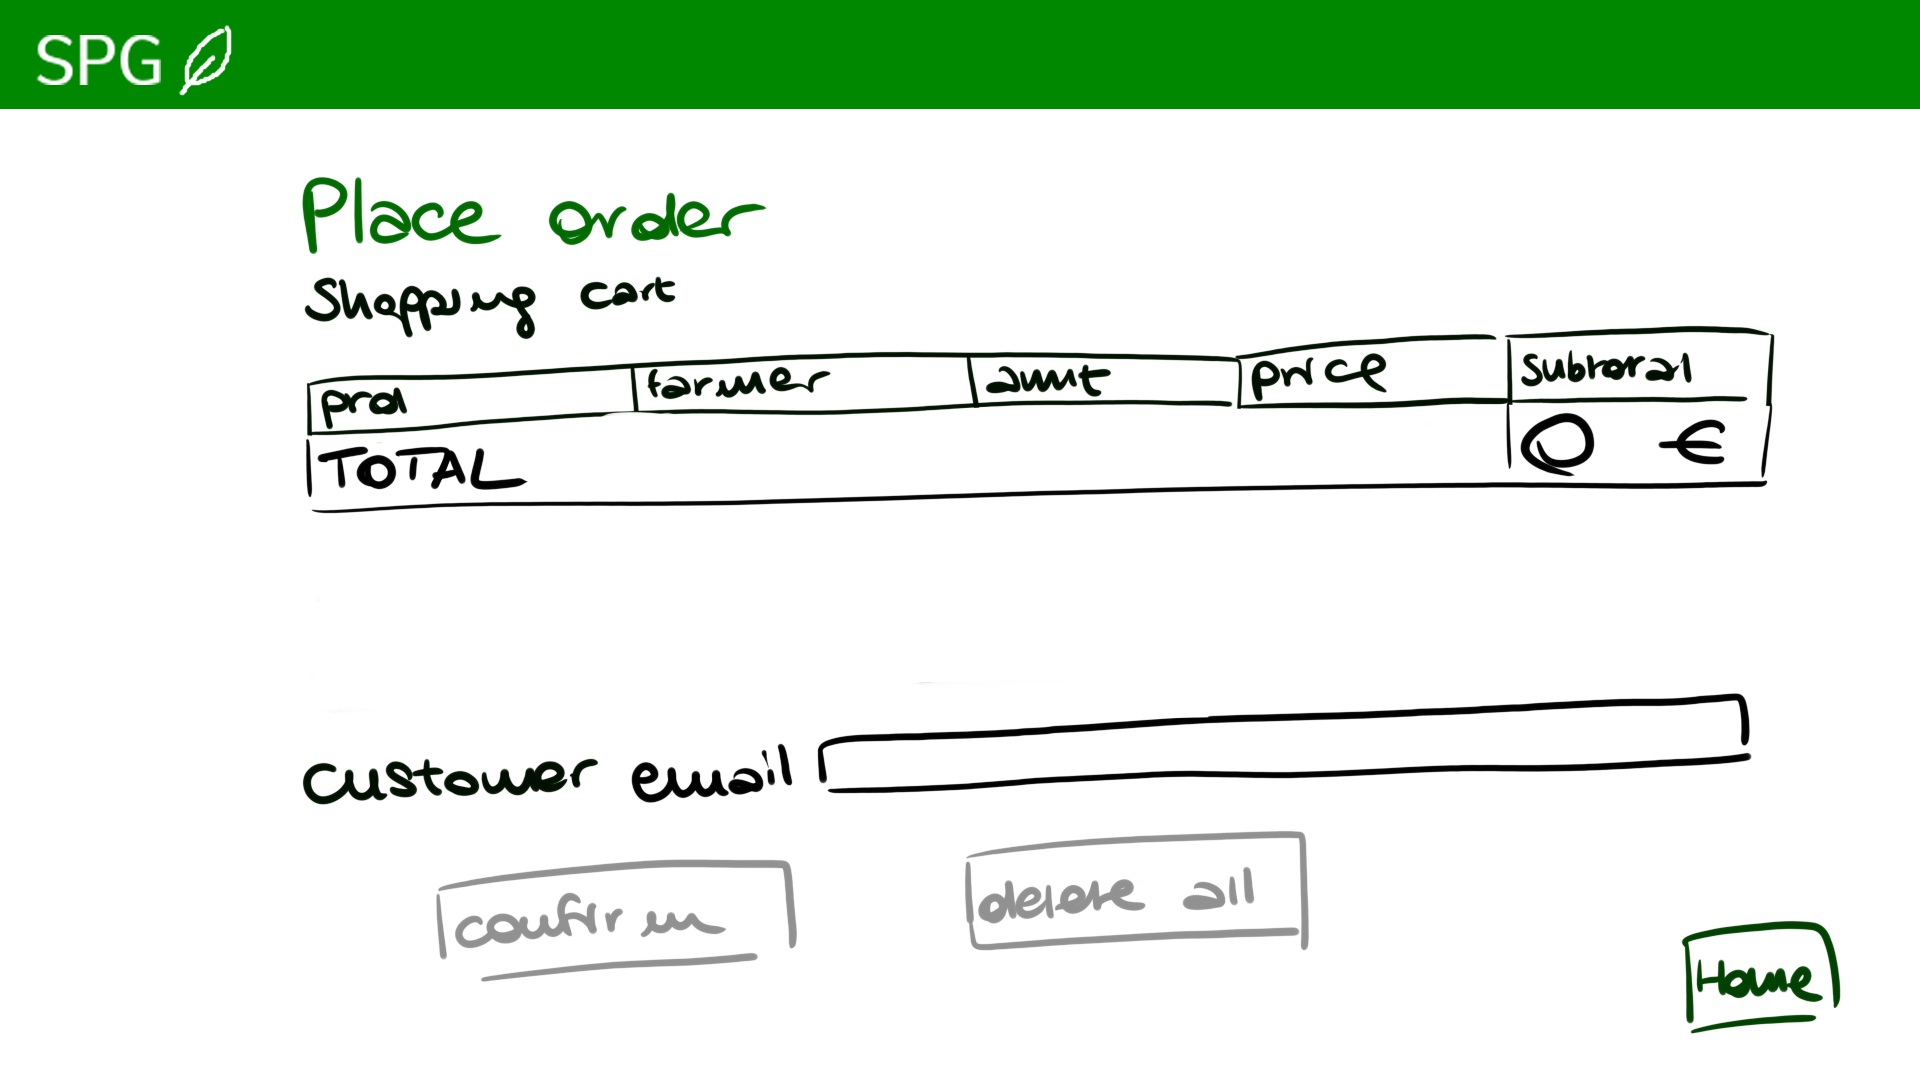 SPG
Place order
Shopping cart
prod farmer amnt price subtotal
TOTAL 0 €
customer email
confirm delete all
Home